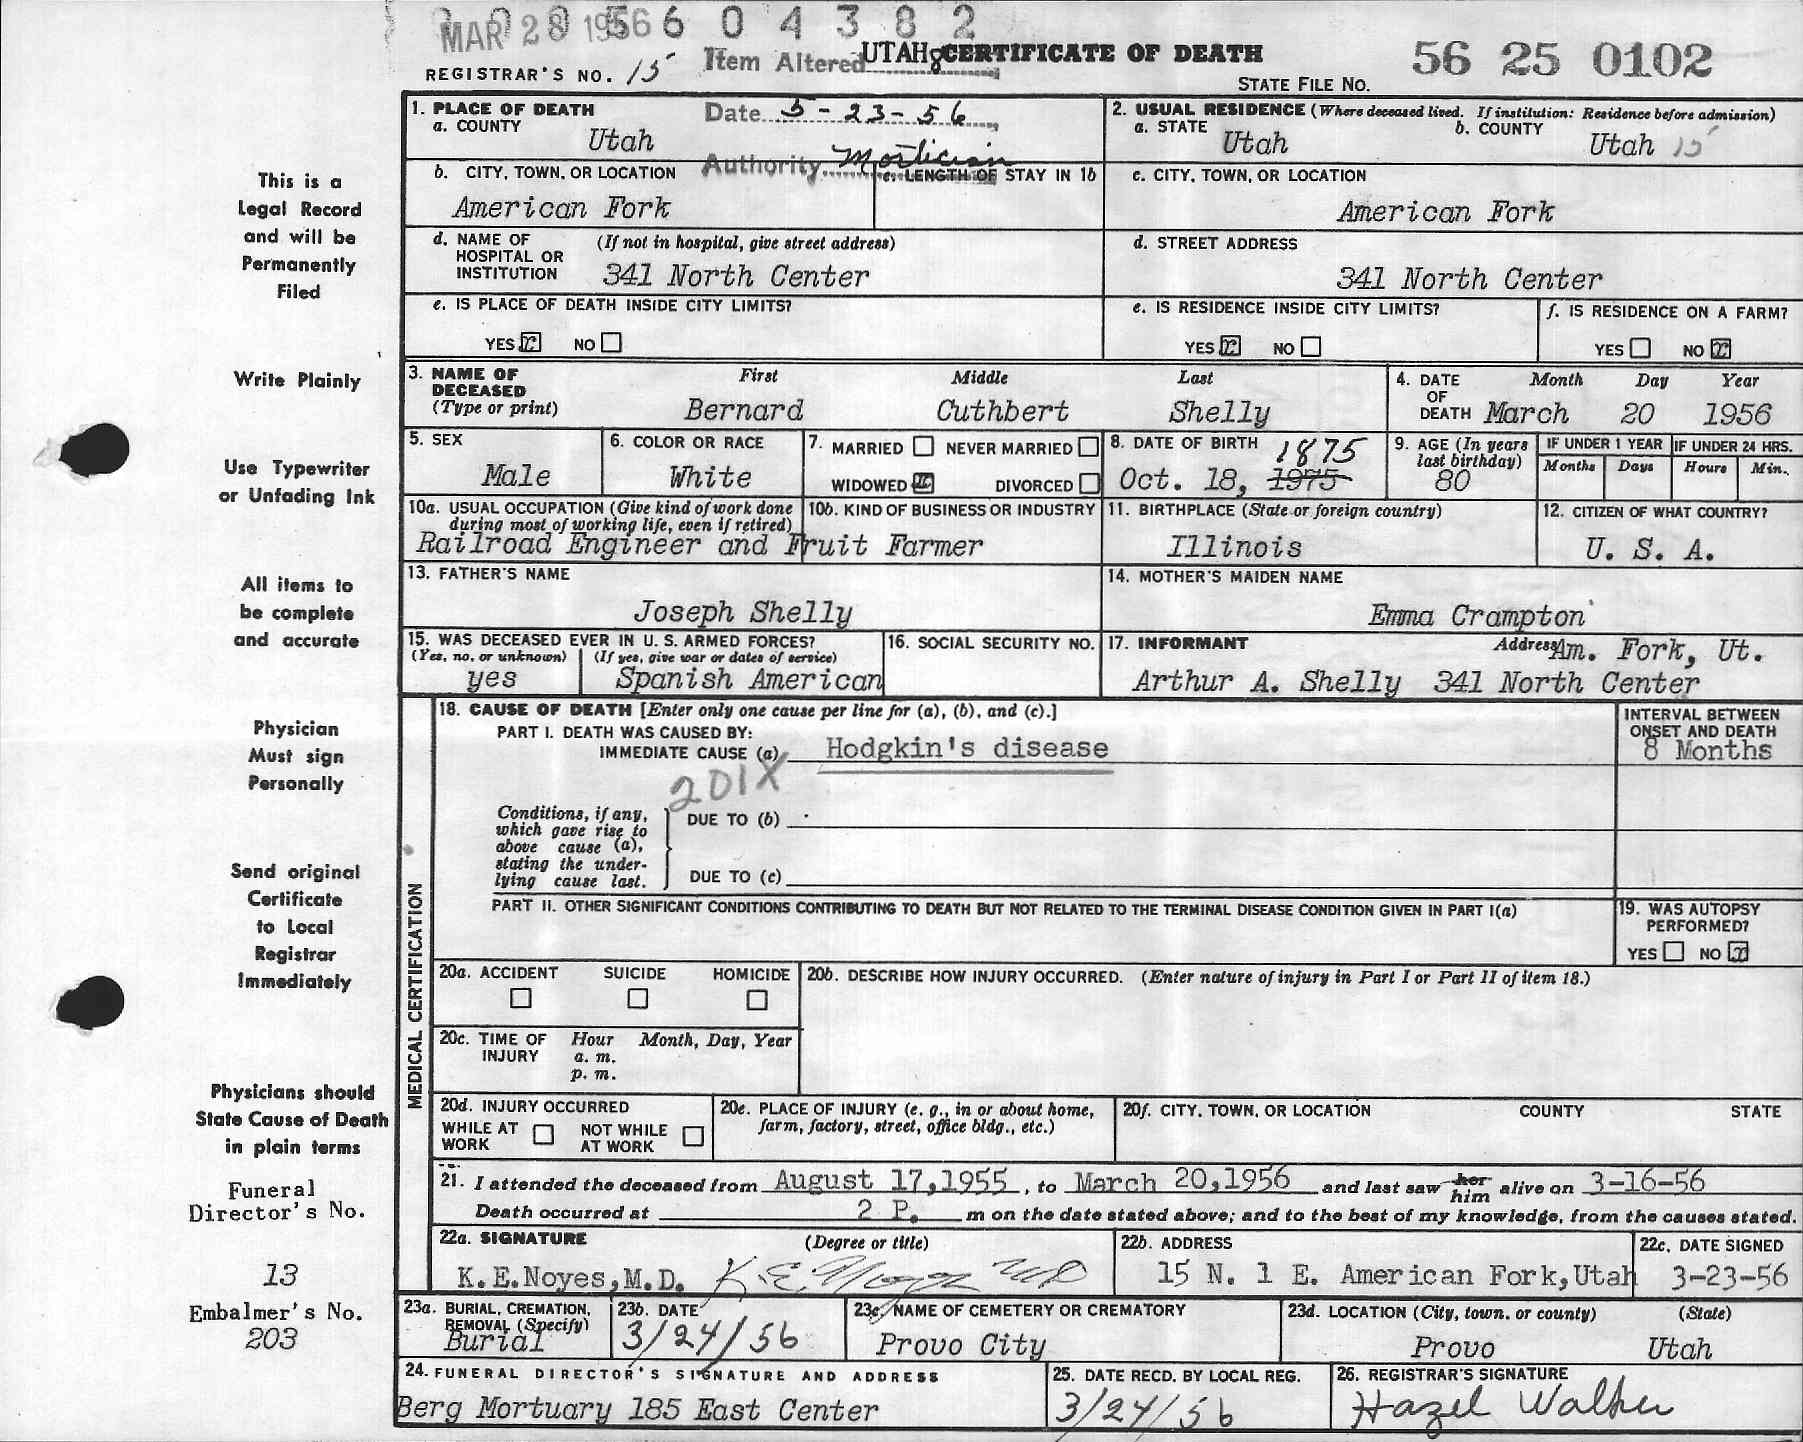 MAR 28 1956 6 0 4 3 8 2
REGISTRAR'S NO. 15 Item Altered 8 UTAH CERTIFICATE OF DEATH 56 25 0102
STATE FILE NO.
1. PLACE OF DEATH Date 5-23-56 2. USUAL RESIDENCE (Where deceased lived. If institution: Residence before admission)
a. COUNTY Utah a. STATE Utah b. COUNTY Utah 15
Authority Mortician
b. CITY, TOWN, OR LOCATION American Fork c. LENGTH OF STAY IN 1b c. CITY, TOWN, OR LOCATION American Fork
d. NAME OF HOSPITAL OR INSTITUTION (If not in hospital, give street address) 341 North Center d. STREET ADDRESS 341 North Center
e. IS PLACE OF DEATH INSIDE CITY LIMITS? e. IS RESIDENCE INSIDE CITY LIMITS? f. IS RESIDENCE ON A FARM?
YES x NO YES x NO YES NO x
3. NAME OF DECEASED (Type or print) First Bernard Middle Cuthbert Last Shelly 4. DATE OF DEATH Month March Day 20 Year 1956
5. SEX Male 6. COLOR OR RACE White 7. MARRIED NEVER MARRIED WIDOWED x DIVORCED 8. DATE OF BIRTH Oct. 18, 1975 1875 9. AGE (In years last birthday) 80 IF UNDER 1 YEAR Months Days IF UNDER 24 HRS. Hours Min.
10a. USUAL OCCUPATION (Give kind of work done during most of working life, even if retired) 10b. KIND OF BUSINESS OR INDUSTRY 11. BIRTHPLACE (State or foreign country) 12. CITIZEN OF WHAT COUNTRY?
Railroad Engineer and Fruit Farmer Illinois U. S. A.
13. FATHER'S NAME 14. MOTHER'S MAIDEN NAME
Joseph Shelly Emma Crampton
15. WAS DECEASED EVER IN U. S. ARMED FORCES? 16. SOCIAL SECURITY NO. 17. INFORMANT Address Am. Fork, Ut.
(Yes, no, or unknown) (If yes, give war or dates of service)
yes Spanish American Arthur A. Shelly 341 North Center
18. CAUSE OF DEATH [Enter only one cause per line for (a), (b), and (c).] INTERVAL BETWEEN ONSET AND DEATH
PART I. DEATH WAS CAUSED BY:
IMMEDIATE CAUSE (a) Hodgkin's disease 8 Months
201X
Conditions, if any, which gave rise to above cause (a), stating the underlying cause last. DUE TO (b)
DUE TO (c)
PART II. OTHER SIGNIFICANT CONDITIONS CONTRIBUTING TO DEATH BUT NOT RELATED TO THE TERMINAL DISEASE CONDITION GIVEN IN PART I(a) 19. WAS AUTOPSY PERFORMED?
YES NO x
MEDICAL CERTIFICATION
20a. ACCIDENT SUICIDE HOMICIDE 20b. DESCRIBE HOW INJURY OCCURRED. (Enter nature of injury in Part I or Part II of item 18.)
20c. TIME OF INJURY Hour a. m. p. m. Month, Day, Year
20d. INJURY OCCURRED WHILE AT WORK NOT WHILE AT WORK 20e. PLACE OF INJURY (e. g., in or about home, farm, factory, street, office bldg., etc.) 20f. CITY, TOWN, OR LOCATION COUNTY STATE
21. I attended the deceased from August 17,1955, to March 20,1956 and last saw her him alive on 3-16-56
Death occurred at 2 P. m on the date stated above; and to the best of my knowledge, from the causes stated.
22a. SIGNATURE (Degree or title) 22b. ADDRESS 22c. DATE SIGNED
K.E.Noyes,M.D. K. E. Noyes MD 15 N. 1 E. American Fork,Utah 3-23-56
23a. BURIAL, CREMATION, REMOVAL (Specify) Burial 23b. DATE 3/24/56 23c. NAME OF CEMETERY OR CREMATORY Provo City 23d. LOCATION (City, town, or county) (State) Provo Utah
24. FUNERAL DIRECTOR'S SIGNATURE AND ADDRESS 25. DATE RECD. BY LOCAL REG. 26. REGISTRAR'S SIGNATURE
Berg Mortuary 185 East Center 3/24/56 Hazel Walker
This is a
Legal Record
and will be
Permanently
Filed
Write Plainly
Use Typewriter
or Unfading Ink
All items to
be complete
and accurate
Physician
Must sign
Personally
Send original
Certificate
to Local
Registrar
Immediately
Physicians should
State Cause of Death
in plain terms
Funeral
Director's No.
13
Embalmer's No.
203